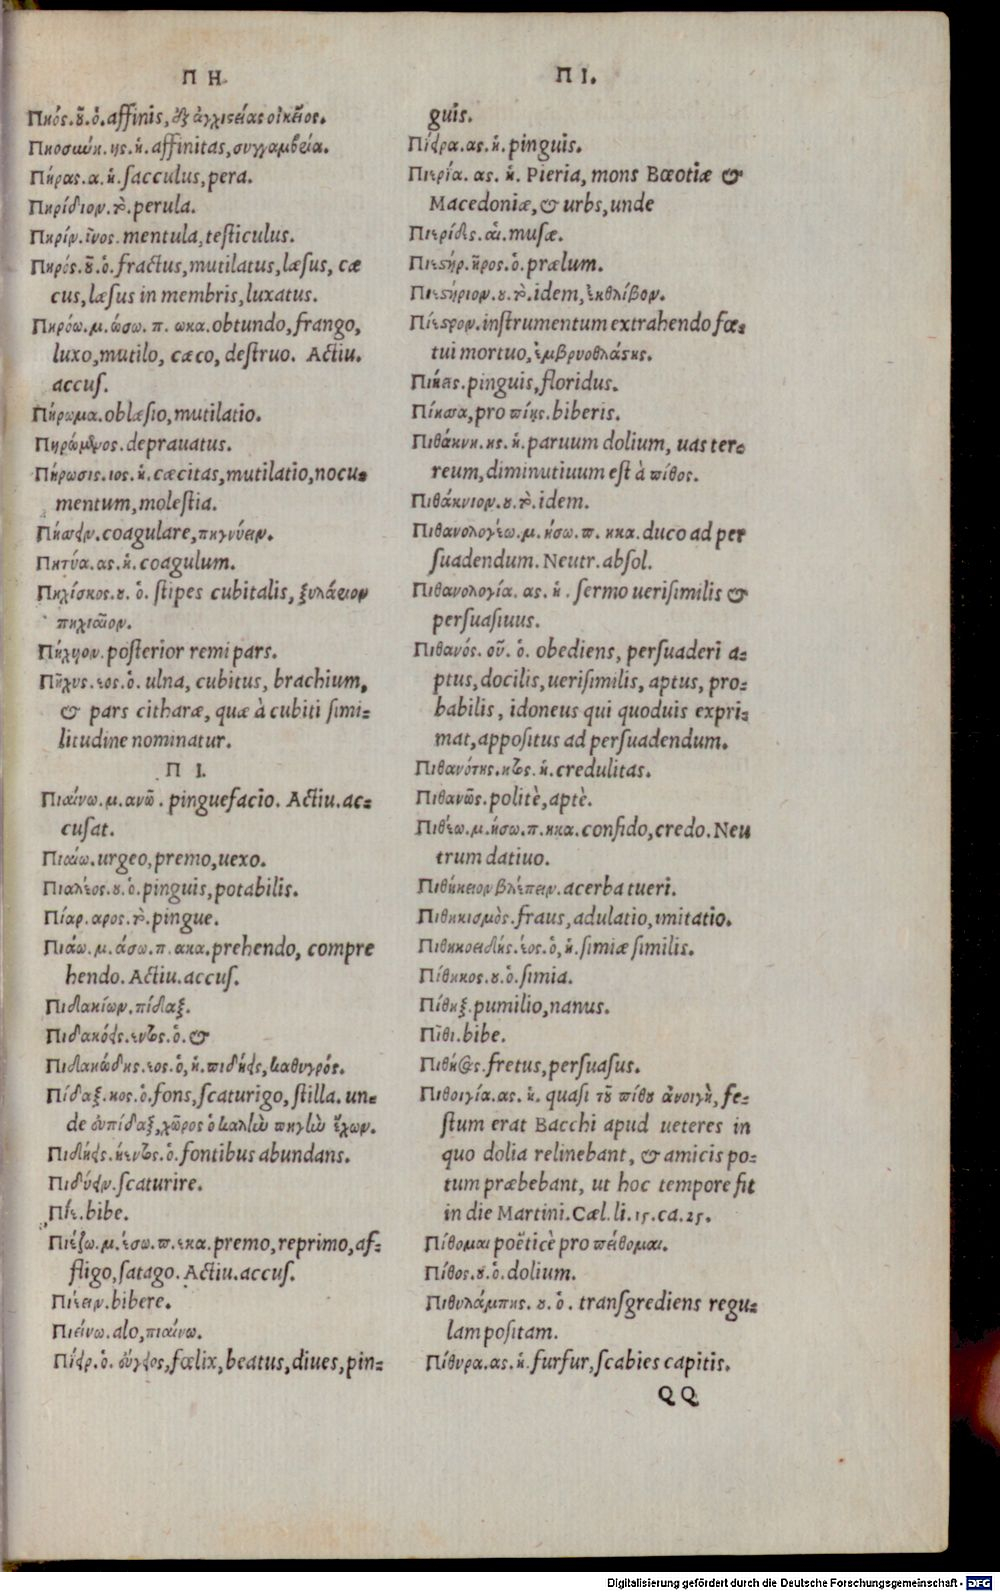 Π Η
Πηός. οῦ. ὁ. affinis, ἐξ ἀγχιστείας οἰκεῖος.
Πηοσύνη. ης. ἡ. affinitas, συγγαμβρία.
Πήρας. α. ἡ. ſacculus, pera.
Πηρίδιον. τὸ. perula.
Πηρίν. ῖνος. mentula, teſticulus.
Πηρός. οῦ. ὁ. fractus, mutilatus, læſus, cæ
cus, læſus in membris, luxatus.
Πηρόω. μ. ώσω. π. ωκα. obtundo, frango,
luxo, mutilo, cæco, deſtruo. Actiu.
accuſ.
Πήρωμα. oblæſio, mutilatio.
Πηρώμενος. deprauatus.
Πήρωσις. ιος. ἡ. cæcitas, mutilatio, nocu-
mentum, moleſtia.
Πήσσειν. coagulare, πηγνύειν.
Πητύα. ας. ἡ. coagulum.
Πηχίσκος. ου. ὁ. ſtipes cubitalis, ξυλάριον
πηχιαῖον.
Πήχυον. poſterior remi pars.
Πῆχυς. εος. ὁ. ulna, cubitus, brachium,
& pars citharæ, quæ à cubiti ſimi-
litudine nominatur.
Π Ι.
Πιαίνω. μ. ανῶ. pinguefacio. Actiu. ac-
cuſat.
Πιαίω. urgeo, premo, uexo.
Πιαλέος. ου. ὁ. pinguis, potabilis.
Πίαρ. αρος. τὸ. pingue.
Πιάω. μ. άσω. π. ακα. prehendo, compre
hendo. Actiu. accuſ.
Πιδακίων. πίδαξ.
Πιδακόεις. εντος. ὁ. &
Πιδακώδης. εος. ὁ, ἡ. πιδήεις, καθυγρός.
Πίδαξ. κος. ὁ. fons, ſcaturigo, ſtilla. un-
de εὐπίδαξ, χῶρος ὁ καλὴν πηγὴν ἔχων.
Πιδήεις. ήεντος. ὁ. fontibus abundans.
Πιδύειν. ſcaturire.
Πίε. bibe.
Πιέζω. μ. έσω. π. εκα. premo, reprimo, af-
fligo, ſatago. Actiu. accuſ.
Πιέειν. bibere.
Πιείνω. alo, πιαίνω.
Πίειρ. ὁ. εὔγειος, fœlix, beatus, diues, pin-
Π Ι.
guis.
Πίειρα. ας. ἡ. pinguis.
Πιερία. ας. ἡ. Pieria, mons Bœotiæ &
Macedoniæ, & urbs, unde
Πιερίδες. αἱ. muſæ.
Πιεστήρ. ῆρος. ὁ. prælum.
Πιεστήριον. ου. τὸ. idem, ἐκθλίβον.
Πίεστρον. inſtrumentum extrahendo fœ-
tui mortuo, ἐμβρυοθλάστης.
Πιήεις. pinguis, floridus.
Πίησα, pro πίῃς. biberis.
Πιθάκνη. ης. ἡ. paruum dolium, uas ter-
reum, diminutiuum eſt à πίθος.
Πιθάκνιον. ου. τὸ. idem.
Πιθανολογέω. μ. ήσω. π. ηκα. duco ad per
ſuadendum. Neutr. abſol.
Πιθανολογία. ας. ἡ. ſermo ueriſimilis &
perſuaſiuus.
Πιθανός. οῦ. ὁ. obediens, perſuaderi a-
ptus, docilis, ueriſimilis, aptus, pro-
babilis, idoneus qui quoduis expri-
mat, appoſitus ad perſuadendum.
Πιθανότης. ητος. ἡ. credulitas.
Πιθανῶς. politè, aptè.
Πιθέω. μ. ήσω. π. ηκα. confido, credo. Neu
trum datiuo.
Πιθήκειον βλέπειν. acerba tueri.
Πιθηκισμὸς. fraus, adulatio, imitatio.
Πιθηκοειδής. έος. ὁ, ἡ. ſimiæ ſimilis.
Πίθηκος. ου. ὁ. ſimia.
Πίθηξ. pumilio, nanus.
Πῖθι. bibe.
Πιθήσας. fretus, perſuaſus.
Πιθοιγία. ας. ἡ. quaſi τοῦ πίθου ἀνοιγὴ, fe-
ſtum erat Bacchi apud ueteres in
quo dolia relinebant, & amicis po-
tum præbebant, ut hoc tempore fit
in die Martini. Cæl. li. 15. ca. 25.
Πίθομαι poëticè pro πείθομαι.
Πίθος. ου. ὁ. dolium.
Πιθυλάμπης. ου. ὁ. tranſgrediens regu-
lam poſitam.
Πίθυρα. ας. ἡ. furfur, ſcabies capitis.
QQ
Digitalisierung gefördert durch die Deutsche Forschungsgemeinschaft - DFG